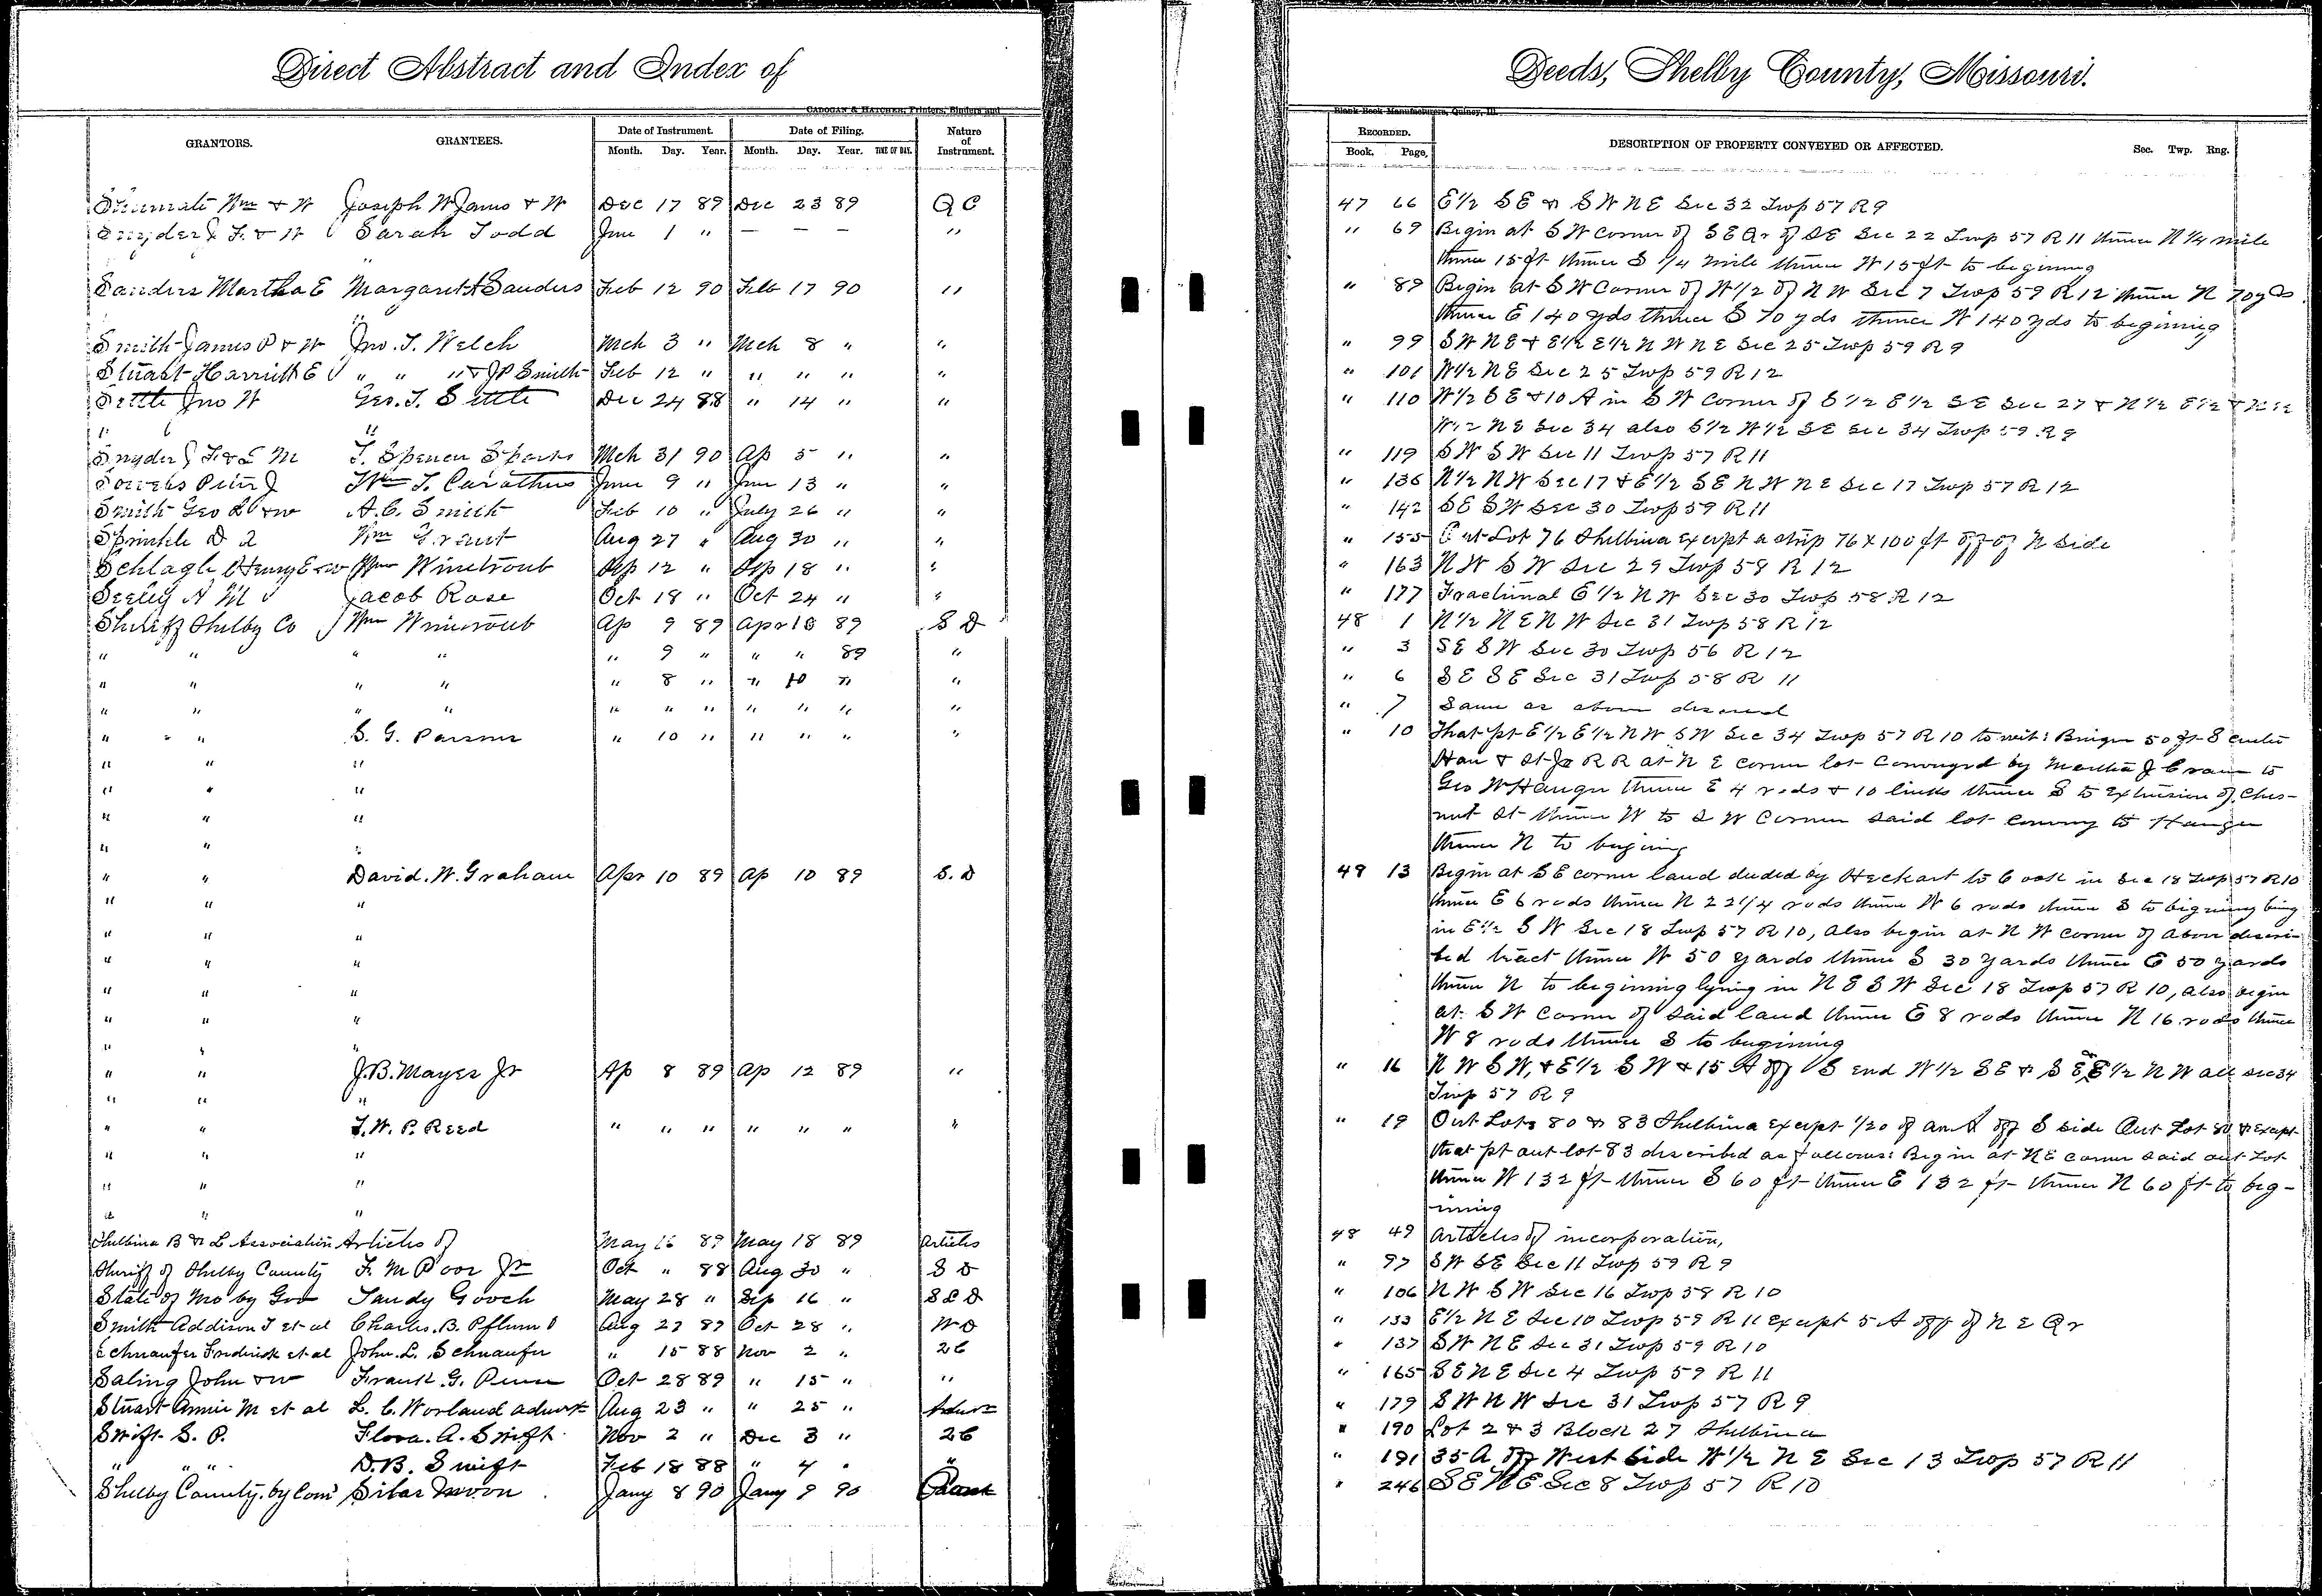 Direct Abstract and Index of Deeds, Shelby County, Missouri.
CADOGAN & HATCHER, Printers, Binders and Blank Book Manufacturers, Quincy, Ill.
GRANTORS. GRANTEES. Date of Instrument. Date of Filing. Nature of Instrument. RECORDED. DESCRIPTION OF PROPERTY CONVEYED OR AFFECTED. Sec. Twp. Rng.
Month. Day. Year. Month. Day. Year. TIME OF DAY. Book. Page.
Shumate Wm & W Joseph W James & W Dec 17 89 Dec 23 89 Q C 47 66 E½ S E & S W N E Sec 32 Twp 57 R 9
Snyder J F. & W Sarah Todd June 1 " — — — " " 69 Begin at S W Corner of S E Qr of S E Sec 22 Twp 57 R 11 thence N ¼ mile
" thence 15 ft thence S ¼ mile thence W 15 ft to begining
Sanders Martha E Margaret A Sanders Feb 12 90 Feb 17 90 " " 89 Begin at S W Corner of W ½ of N W Sec 7 Twp 59 R 12 thence N 70 yds
" thence E 140 yds thence S 70 yds thence W 140 yds to begining
Smith James P & W Jno. T. Welch Mch 3 " Mch 8 " " " 99 S W N E & E½ E½ N W N E Sec 25 Twp 59 R 9
Stuart Harriett E " " " & J P Smith Feb 12 " " " " " " 101 W½ N E Sec 25 Twp 59 R 12
Settle Jno W Geo. T. Settle Dec 24 88 " 14 " " " 110 W½ S E & 10 A in S W Corner of E ½ E½ S E Sec 27 & N½ E½ & N½
" " W½ N E Sec 34 also S½ W½ S E Sec 34 Twp 59 R 9
Snyder J F. & L M T. Spencer Sparks Mch 31 90 Ap 5 " " " 119 S W S W Sec 11 Twp 57 R 11
Sowers Peter J Wm T. Carothers June 9 " June 13 " " " 136 N½ N W Sec 17 & E½ S E N W N E Sec 17 Twp 57 R 12
Smith Geo & w A. C. Smith Feb 10 " July 26 " " " 142 S E S W Sec 30 Twp 59 R 11
Sprinkle D Wm Grant Aug 27 " Aug 30 " " " 155 Out Lot 76 Shelbina except a strip 76 X 100 ft off of N side
Schlagle Henry E & w Wm Winetroub Sep 12 " Sep 18 " " " 163 N W S W Sec 29 Twp 58 R 12
Seeley A M Jacob Rose Oct 18 " Oct 24 " " " 177 Fractional E ½ N W Sec 30 Twp 58 R 12
Sheriff Shelby Co Wm Winetroub Ap 9 89 Apr 10 89 S D 48 1 N½ N E N W Sec 31 Twp 58 R 12
" " " " " 9 " " " 89 " " 3 S E S W Sec 30 Twp 56 R 12
" " " " " 8 " " 10 " " " 6 S E S E Sec 31 Twp 58 R 11
" " " " " " " " " " " " 7 Same as above
" " S. G. Parsons " 10 " " " " " " 10 That pt E½ E½ N W S W Sec 34 Twp 57 R 10 to wit: 50 ft S
" " " Han & St Jo R R at N E corner lot conveyed by Martha J to
" " " Geo W Hanger thence E 4 rods & 10 links thence S to Extension of Ches-
" " " nut St thence W to S W Corner said lot to Hanger
" " " thence N to begining
" " David. W. Graham Apr 10 89 Ap 10 89 S. D 48 13 Begin at S E corner land deeded by Heckart to Cook in Sec 18 Twp 57 R 10
" " " thence E 6 rods thence N 22¼ rods thence W 6 rods thence S to begining being
" " " in E½ S W Sec 18 Twp 57 R 10, also begin at N W corner of above descri-
" " " bed tract thence W 50 yards thence S 30 yards thence E 50 yards
" " " thence N to begining lying in N E S W Sec 18 Twp 57 R 10, also begin
" " " at S W Corner of said land thence E 8 rods thence N 16 rods thence
" " " W 8 rods thence S to begining
" " J. B. Mayes Jr Ap 8 89 Ap 12 89 " " 16 N W S W, & E½ S W & 15 A off S end W ½ S E & S E E½ N W all sec 34
" " " Twp 57 R 9
" " T. W. P. Reed " " " " " " " " 19 Out Lots 80 & 83 Shelbina except 1/20 of an A off S side Out Lot 80 & except
" " " that pt out lot 83 described as follows: Begin at N E corner said out Lot
" " " thence W 132 ft thence S 60 ft thence E 132 ft thence N 60 ft to beg-
" " " inning
Shelbina B & L Association Articles of May 16 89 May 18 89 Articles 48 49 Articles of incorporation,
Sheriff of Shelby County F. M Poor Jr Oct " 88 Aug 30 " S D " 97 S W S E Sec 11 Twp 59 R 9
State of Mo by Gov Sandy Gooch May 28 " Sep 16 " " 106 N W S W Sec 16 Twp 58 R 10
Smith Addison T et al Charles. B. Pflum Aug 27 87 Oct 28 " W D " 133 E½ N E Sec 10 Twp 59 R 11 except 5 A off of N E Qr
Schnaufer Fredrick et al John. L. Schnaufer " 15 88 Nov 2 " 2 C " 137 S W N E Sec 31 Twp 59 R 10
Saling John & w Frank. G. Oct 28 89 " 15 " " " 165 S E N E Sec 4 Twp 59 R 11
Stuart Annie M et al L. C. Worland Aug 23 " " 25 " " 179 S W N W Sec 31 Twp 57 R 9
Swift S. P. Flora. A. Swift Nov 2 " Dec 3 " 2 C " 190 Lot 2 & 3 Block 27 Shelbina
" " " D. B. Swift Feb 18 88 " 4 " " " 191 35 A off West Side W ½ N E Sec 13 Twp 57 R 11
Shelby County. by Com Silas Moon Jany 8 90 Jany 9 90 " 246 S E N E Sec 8 Twp 57 R 10